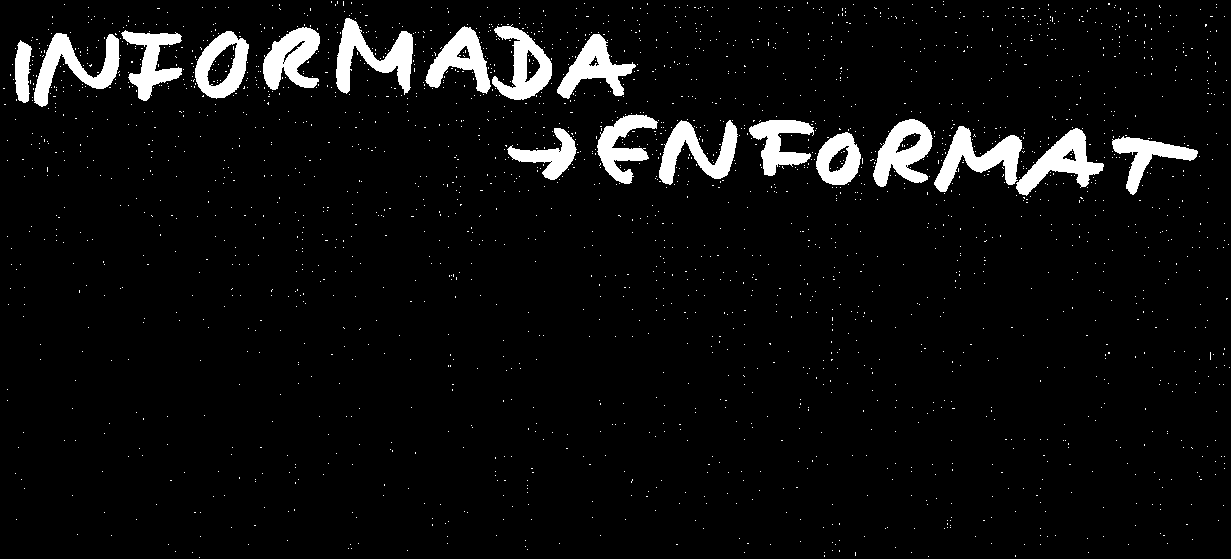 INFORMADA
→ ENFORMAT